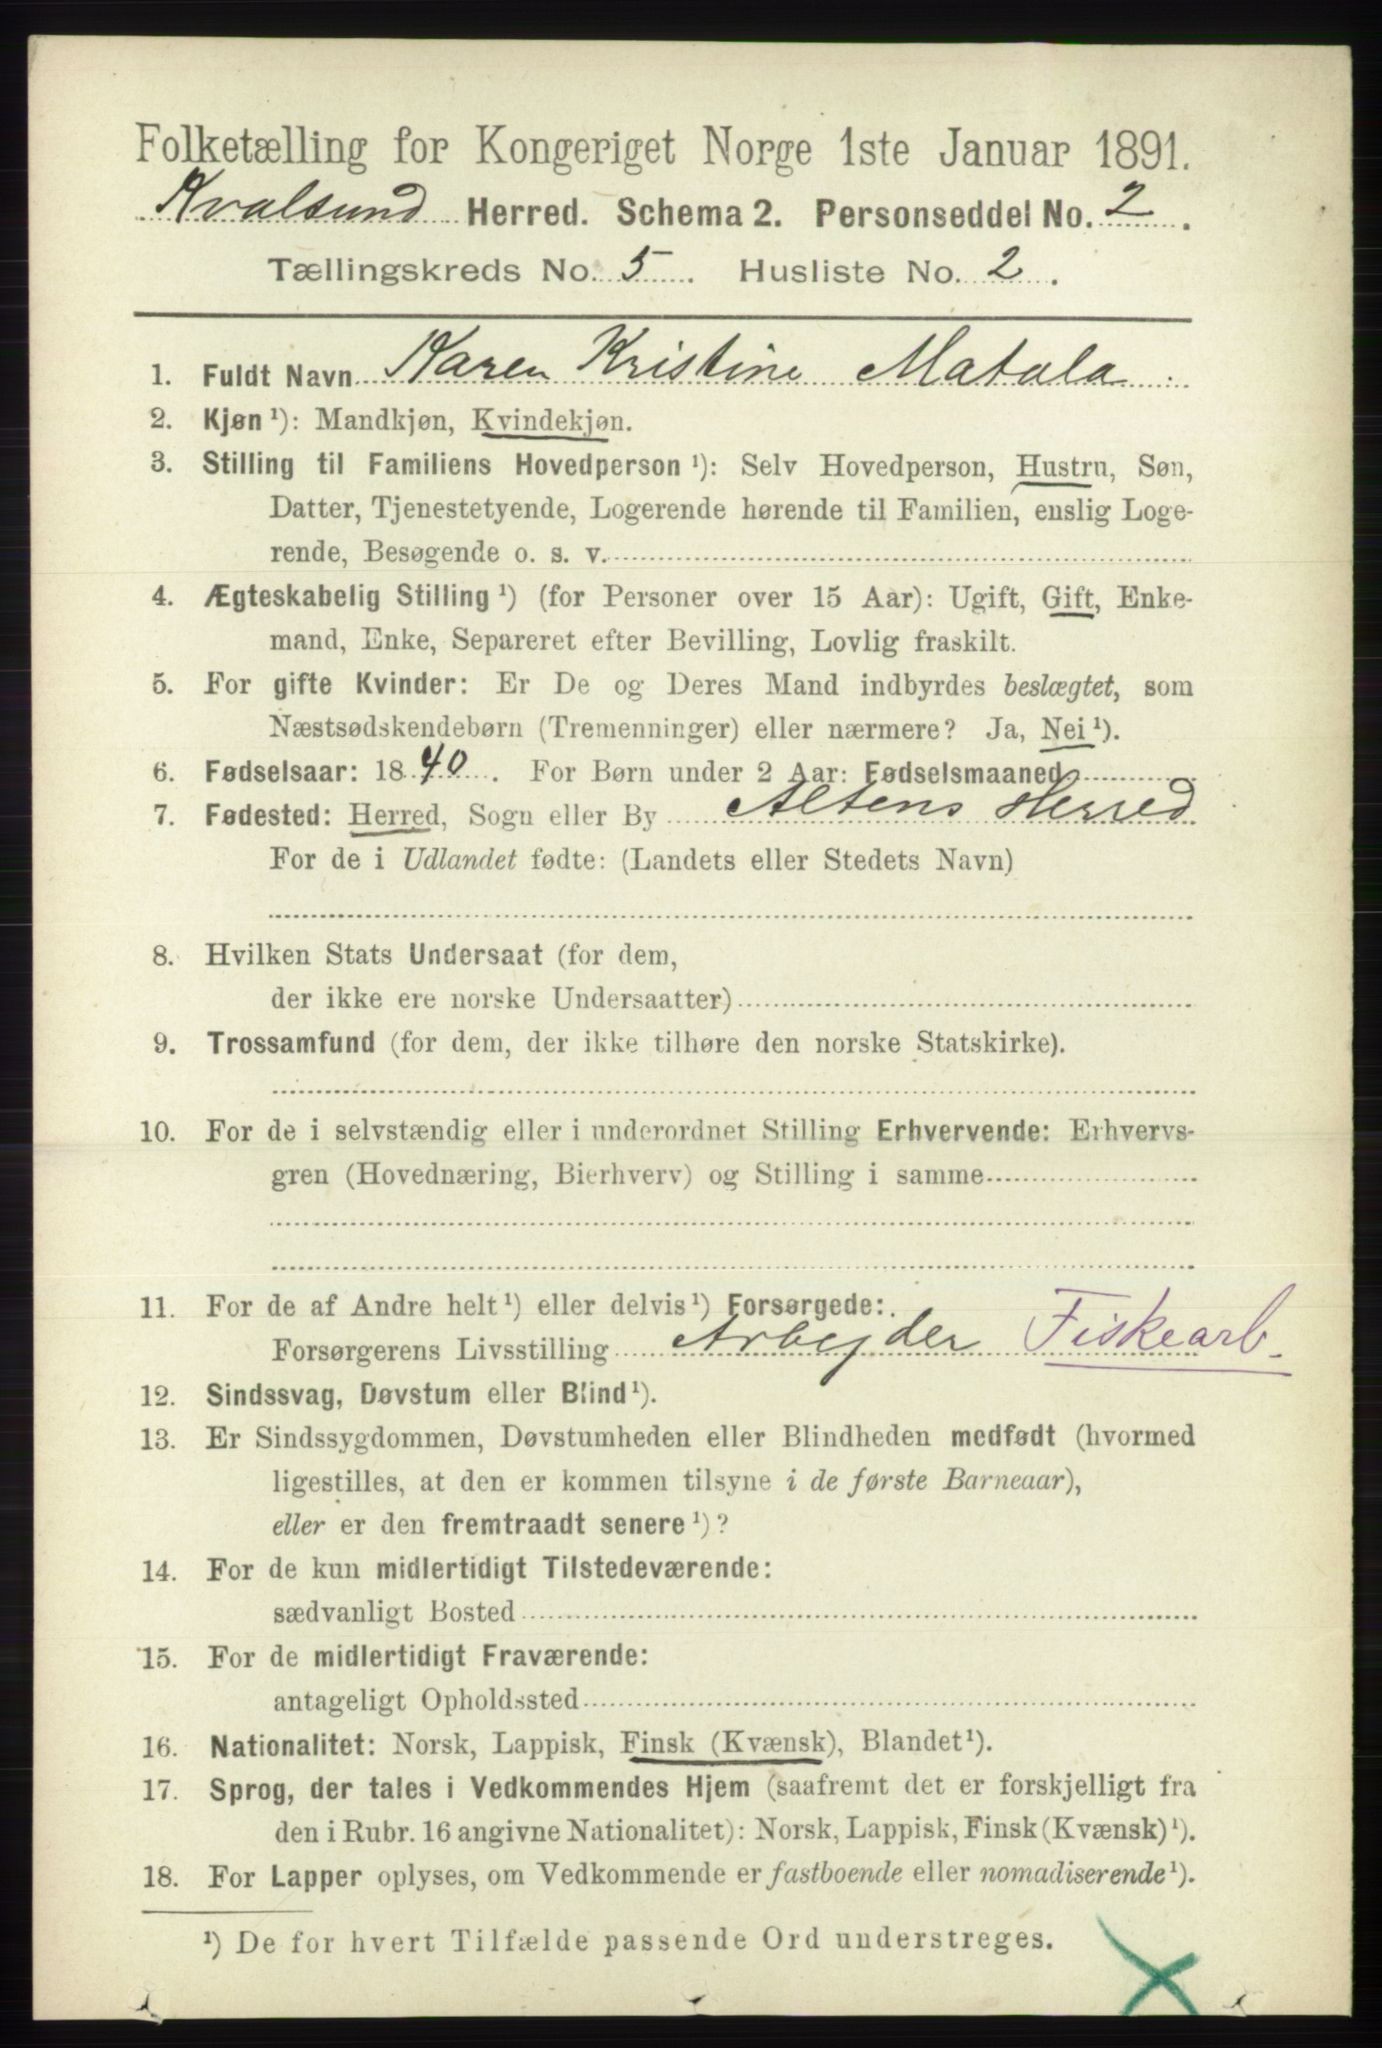 Folketælling for Kongeriget Norge 1ste Januar 1891.
Kvalsund Herred. Schema 2. Personseddel No. 2.
Tællingskreds No. 5. Husliste No. 2.
1. Fuldt Navn Karen Kristine Matala
2. Kjøn ¹): Mandkjøn, Kvindekjøn.
3. Stilling til Familiens Hovedperson ¹): Selv Hovedperson, Hustru, Søn,
Datter, Tjenestetyende, Logerende hørende til Familien, enslig Loge-
rende, Besøgende o. s. v.
4. Ægteskabelig Stilling ¹) (for Personer over 15 Aar): Ugift, Gift, Enke-
mand, Enke, Separeret efter Bevilling, Lovlig fraskilt.
5. For gifte Kvinder: Er De og Deres Mand indbyrdes beslægtet, som
Næstsødskendebørn (Tremenninger) eller nærmere? Ja, Nei ¹).
6. Fødselsaar: 1840. For Børn under 2 Aar: Fødselsmaaned
7. Fødested: Herred, Sogn eller By Altens Herred
For de i Udlandet fødte: (Landets eller Stedets Navn)
8. Hvilken Stats Undersaat (for dem,
der ikke ere norske Undersaatter)
9. Trossamfund (for dem, der ikke tilhøre den norske Statskirke).
10. For de i selvstændig eller i underordnet Stilling Erhvervende: Erhvervs-
gren (Hovednæring, Bierhverv) og Stilling i samme
11. For de af Andre helt ¹) eller delvis ¹) Forsørgede:
Forsørgerens Livsstilling Arbeyder Fiskearb.
12. Sindssvag, Døvstum eller Blind ¹).
13. Er Sindssygdommen, Døvstumheden eller Blindheden medfødt (hvormed
ligestilles, at den er kommen tilsyne i de første Barneaar),
eller er den fremtraadt senere ¹)?
14. For de kun midlertidigt Tilstedeværende:
sædvanligt Bosted
15. For de midlertidigt Fraværende:
antageligt Opholdssted
16. Nationalitet: Norsk, Lappisk, Finsk (Kvænsk), Blandet ¹).
17. Sprog, der tales i Vedkommendes Hjem (saafremt det er forskjelligt fra
den i Rubr. 16 angivne Nationalitet): Norsk, Lappisk, Finsk (Kvænsk) ¹).
18. For Lapper oplyses, om Vedkommende er fastboende eller nomadiserende ¹).
¹) De for hvert Tilfælde passende Ord understreges.